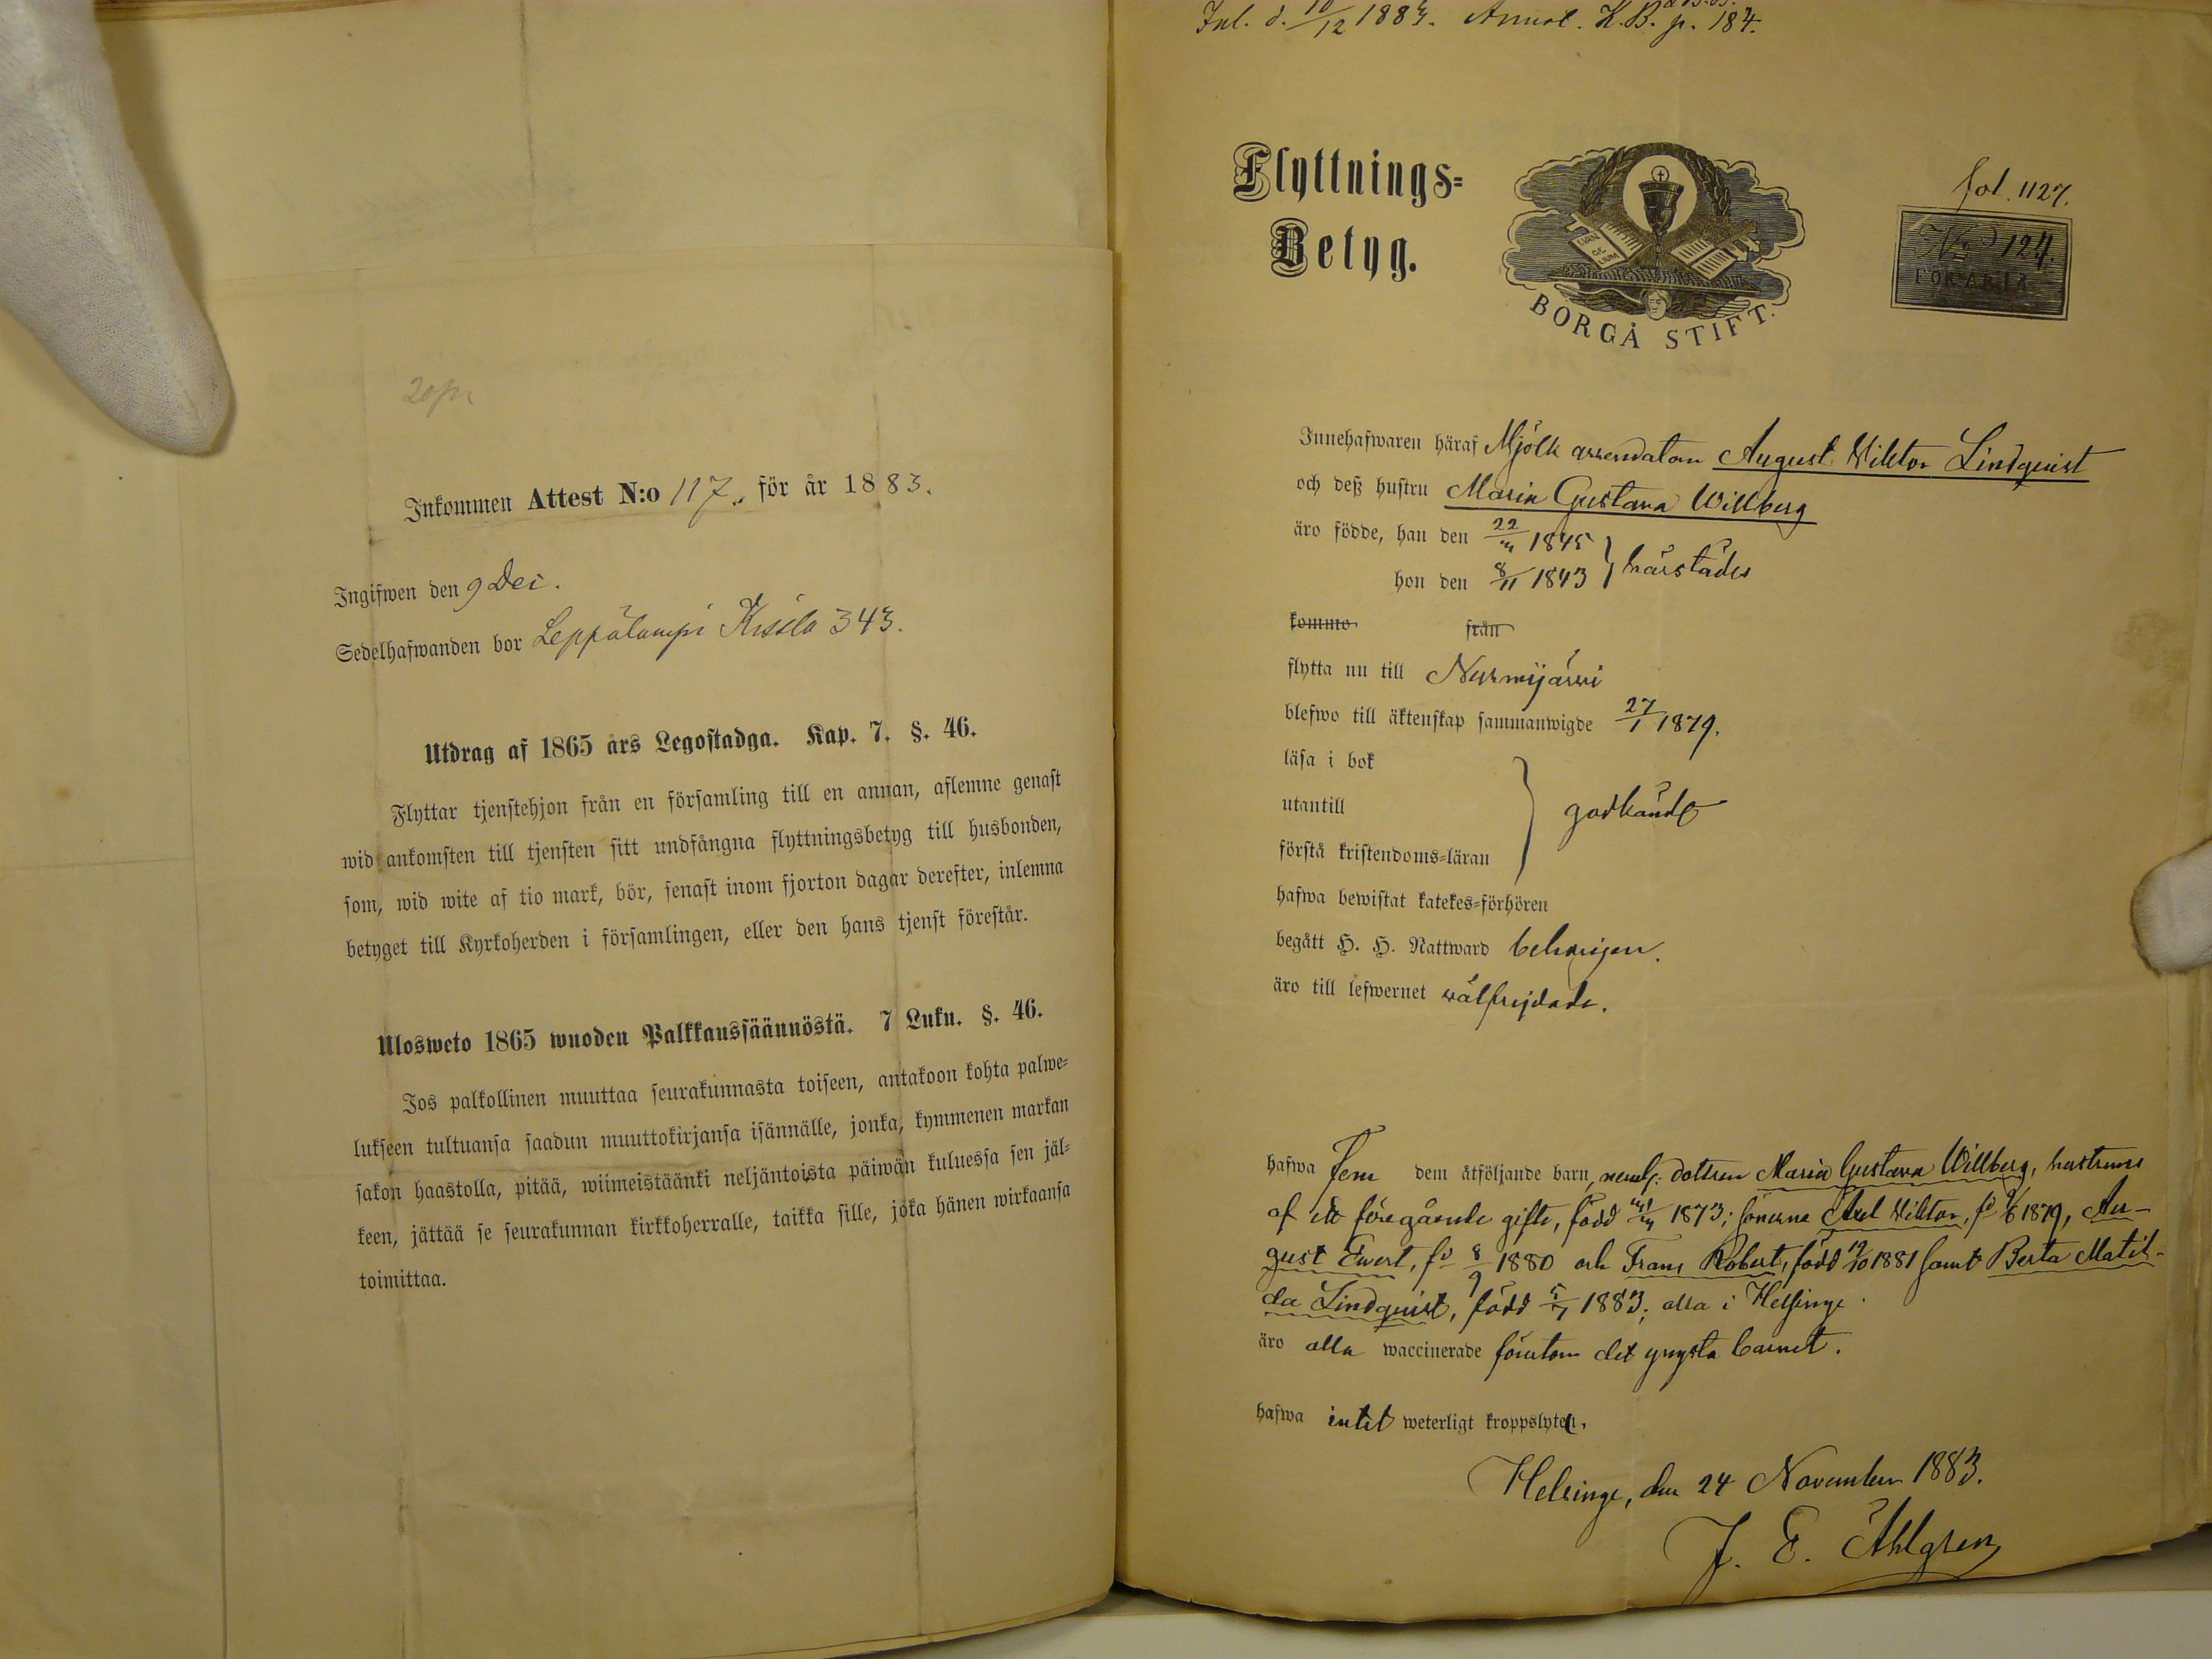 20 pi
Inkommen Attest N:o 117. för år 1883.
Ingifwen den 9 Dec.
Sedelhafwanden bor Leppälampi Kissla 343.
Utdrag af 1865 års Legostadga. Kap. 7. §. 46.
Flyttar tjenstehjon från en församling till en annan, aflemne genast
wid ankomsten till tjensten sitt undfångna flyttningsbetyg till husbonden,
som, wid wite af tio mark, bör, senast inom fjorton dagar derefter, inlemna
betyget till Kyrkoherden i församlingen, eller den hans tjenst förestår.
Ulosweto 1865 wuoden Palkkaussäännöstä. 7 Luku. §. 46.
Jos palkollinen muuttaa seurakunnasta toiseen, antakoon kohta palwe-
lukseen tultuansa saadun muuttokirjansa isännälle, jonka, kymmenen markan
sakon haastolla, pitää, wiimeistäänki neljäntoista päiwän kuluessa sen jäl-
keen, jättää se seurakunnan kirkkoherralle, taikka sille, joka hänen wirkaansa
toimittaa.
Inl. d. 10/12 1883. Annot. K.B. p. 184.
Flyttnings-
Betyg.
EVAN
GE
LIUM
BORGÅ STIFT.
fol. 1127.
No 124.
FÖR ARIA
Innehafwaren häraf Mjölk arrendatorn August Wiktor Lindqvist
och deß hustru Maria Gustava Willberg
äro födde, han den 22/III 1845
hon den 8/11 1843 } härstädes
kommo från
flytta nu till Nurmijärwi
blefwo till äktenskap sammanwigde 27/1 1879.
läsa i bok
utantill } godkändt
förstå kristendoms-läran
hafwa bewistat katekes-förhören
begått H. H. Nattward behörigen.
äro till lefwernet wälfrejdade.
hafwa fem dem åtföljande barn, neml: dottren Maria Gustava Willberg, hustruns
af ett föregående gifte, född 1873; sönerna Axel Wiktor, fd 1879, Au-
gust Ewert, fd 8/9 1880 och Frans Robert, född 12/10 1881 samt Berta Matil-
da Lindqvist, född 5/7 1883; alla i Helsinge.
äro alla waccinerade förutom det yngsta barnet.
hafwa intet weterligt kroppslyte.
Helsinge, den 24 November 1883.
J. E. Åhlgren